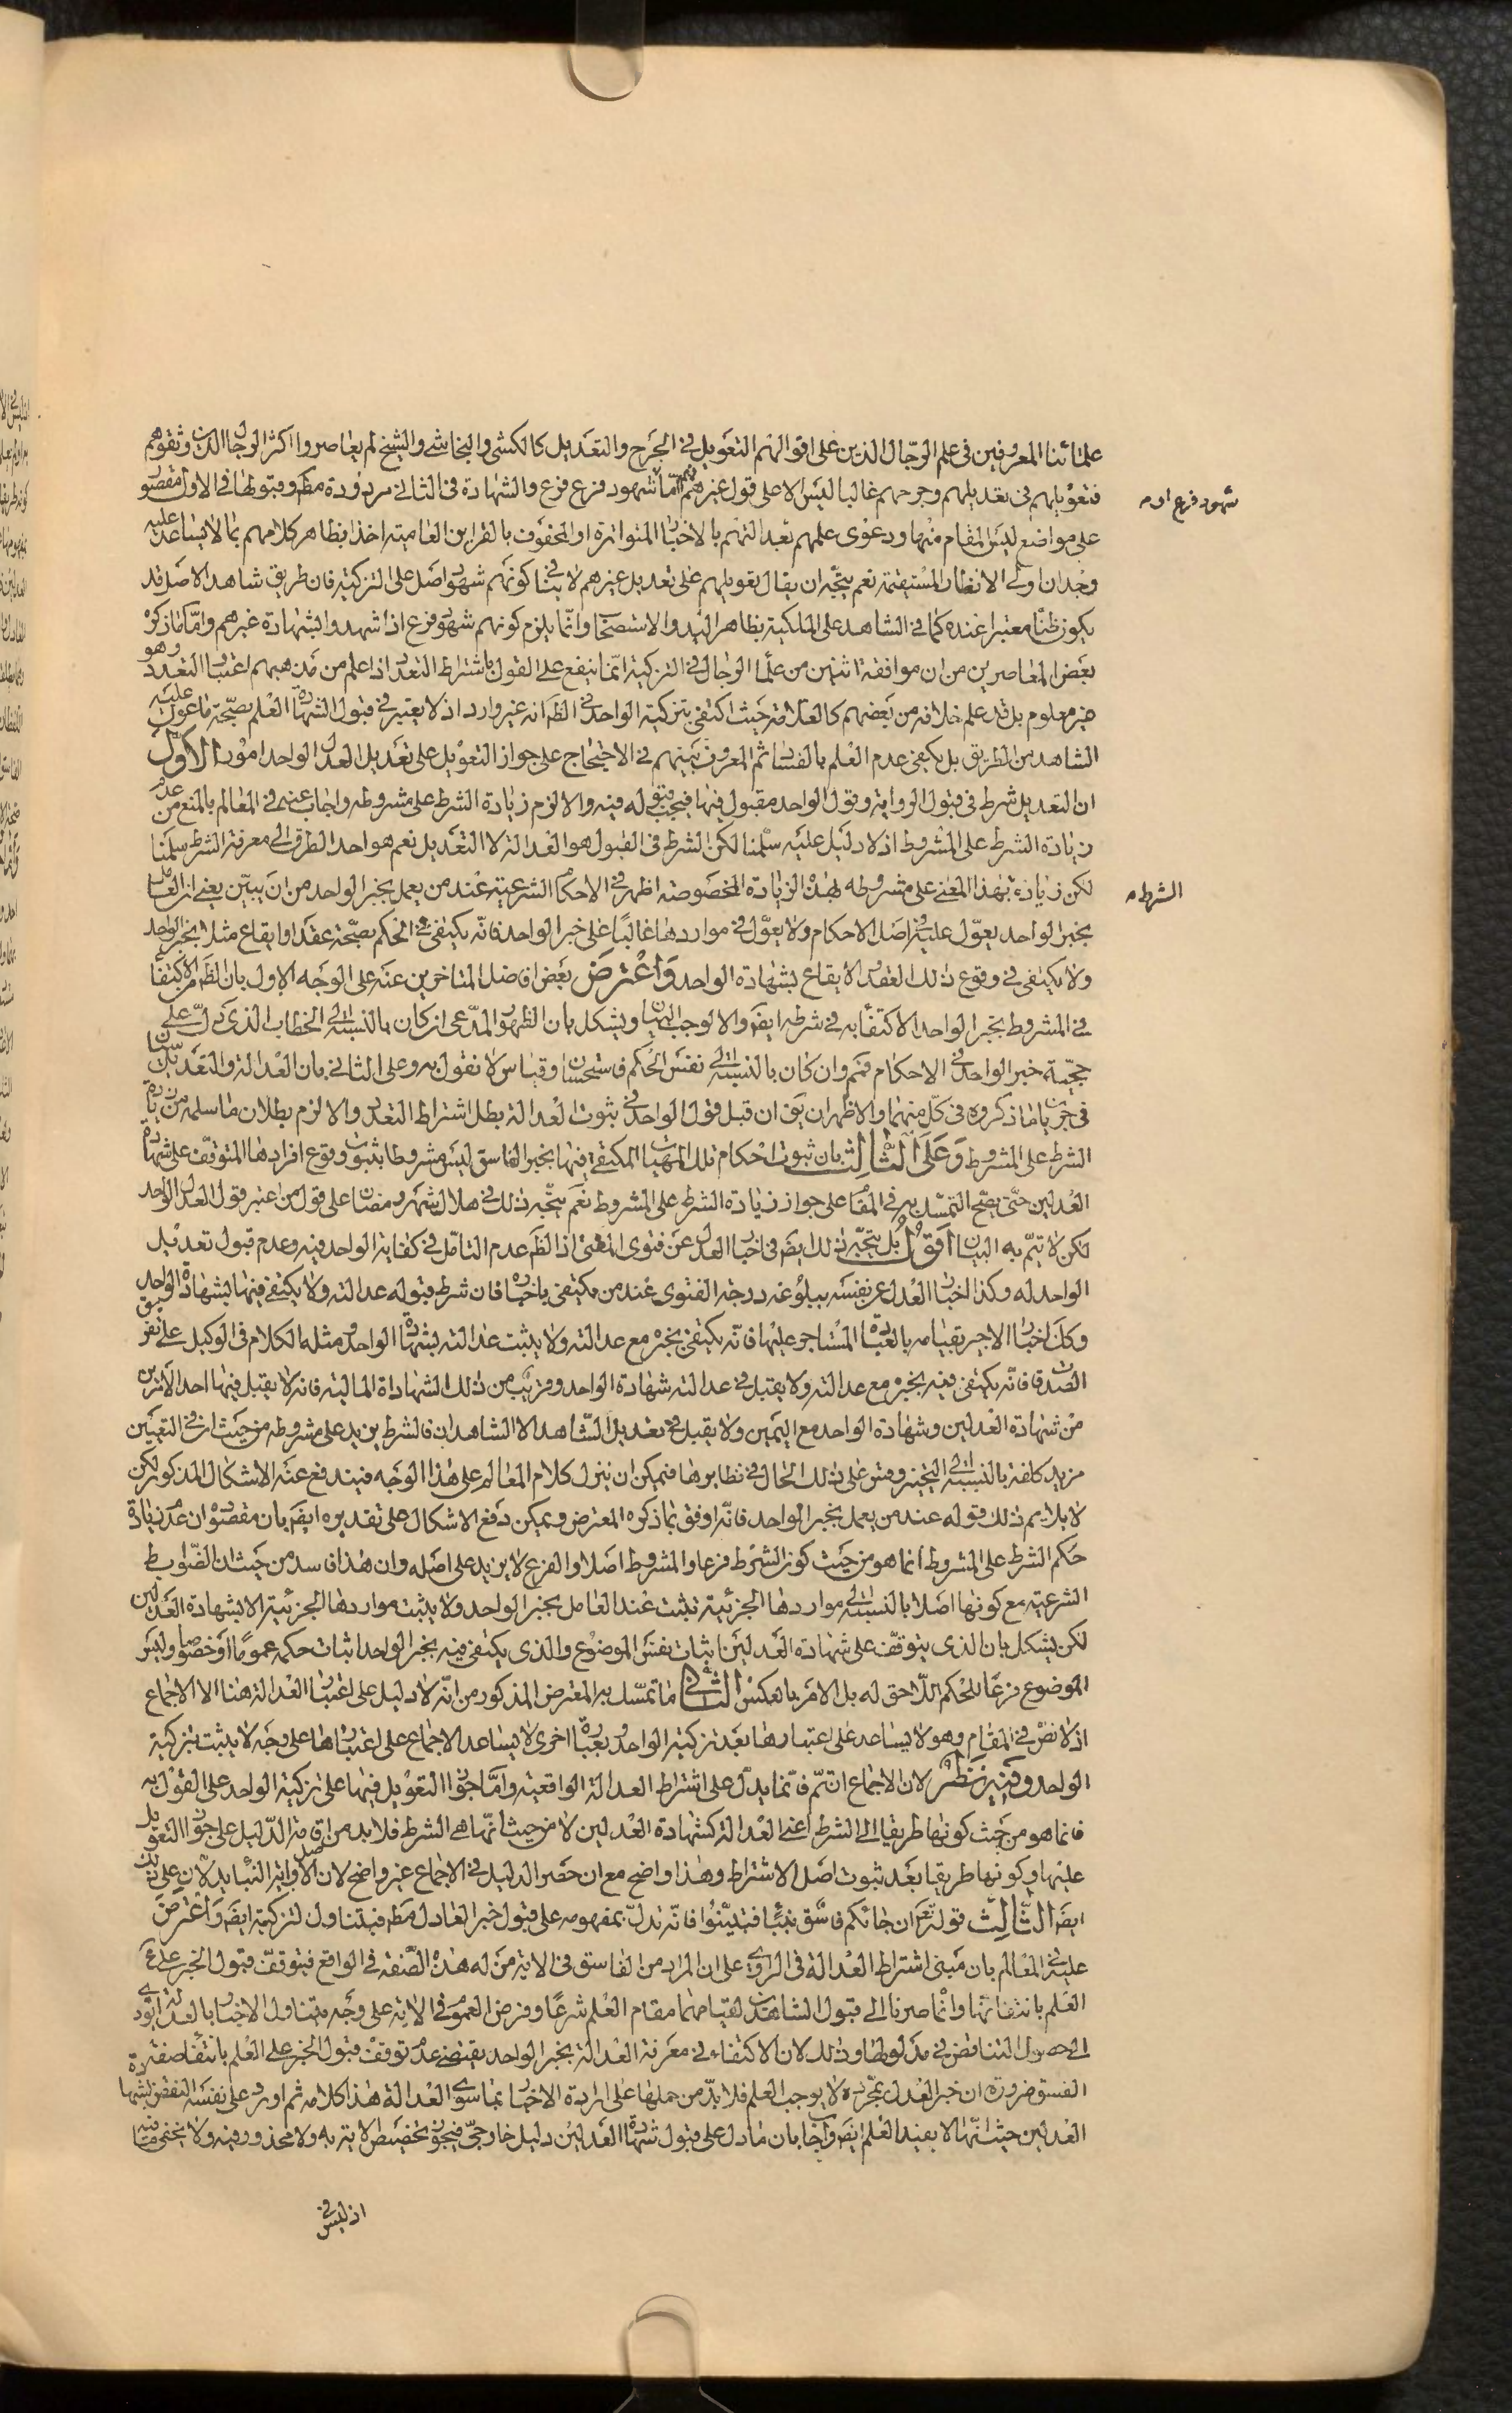 علمائنا المعروفين فى علم الرّجال الذين على اقوالهم التعويل فى الجرح والتعديل كالكشى والنجاشى والشيخ لم يعاصروا اكثر الرجال الذين وثقوهم
فتعويلهم فى تعديلهم وجرحهم غالبا ليس الا على قول غيرهم فهم امّا شهود فرع فرع والشهادة فى الثانى مردودة مطم وقبولها فى الاول مقصور
شهود فرع او م
على مواضع ليس المقام منها ودعوى علمهم بعدالتهم بالاخبار المتواترة او المحفوف بالقراين العامية اخذ بظاهر كلامهم بما لا يساعد عليه
وجدان اولى الانظار المستقيمة نعم يتجه ان يقال تعويلهم على تعديل غيرهم لا ينافى كونهم شهود اصل على التزكية فان طريق شاهد الاصل قد
يكون ظنّا معتبرا عنده كما فى الشاهد على الملكية بظاهر اليد والاستصحاب وانّما يلزم كونهم شهود فرع اذا شهدوا بشهادة غيرهم وامّا ما ذكره
بعض المعاصرين من ان موافقة اثنين من علماء الرجال فى التزكية انّما ينفع على القول باشتراط التعدد اذا علم من مذهبهم اعتبار التعدد وهو
غير معلوم بل قد علم خلافه من بعضهم كالعلامة حيث اكتفى بتزكية الواحد فى الظم انه غير وارد اذ لا يعتبر فى قبول الشهادة العلم بصحّة ما عول عليه
الشاهد من الطريق بل يكفى عدم العلم بالفساد ثم المعروف بينهم فى الاحتجاج على جواز التعويل على تعديل العدل الواحد امور الاول
ان التعديل شرط فى قبول الرواية وقول الواحد مقبول فيها فيجب قبوله فيه والا لزم زيادة الشرط على مشروطه واجاب عنه فى المعالم بالمنع من عدم
زيادة الشرط على المشروط اذ لا دليل عليه سلمنا لكن الشرط فى القبول هو العدالة لا التعديل نعم هو احد الطرق الى معرفة الشرط سلمنا
لكن زيادة بهذا المعنى على مشروطه بهذه الزيادة المخصوصة اظهر فى الاحكام الشرعية عند من يعمل بخبر الواحد من ان يبيّن يعنى ان العامل
الشرط م
بخبر الواحد يعوّل عليه فى اصل الاحكام ولا يعوّل فى مواردها غالبًا على خبر الواحد فانّه يكتفى فى الحكم بصحّة عقد او ايقاع مثلا بخبر الواحد
ولا يكتفى فى وقوع ذلك العقد او الايقاع بشهادة الواحد واعترض بعض افاضل المتاخرين عنه على الوجه الاول بان الظم من الاكتفاء
فى المشروط بخبر الواحد الاكتفاء به فى شرطه ايضم والا لوجب البيان ويشكل بان الظهور المدّعى ان كان بالنسبة الى الخطاب الذى دل على
حجّية خبر الواحد فى الاحكام فمم وان كان بالنسبة الى نفس الحكم فاستحسان وقياس لا نقول به وعلى الثانى بان العدالة والتعديل سيّان
فى جريان ما ذكروه فى كلّ منهما والاظهر ان يق ان قبل قول الواحد فى ثبوت العدالة بطل اشتراط التعدد والا لزم بطلان ما سلمه من زيادة
الشرط على المشروط وعلى الثالث بان ثبوت احكام تلك المهيات المكتفى فيها بخبر الفاسق ليس مشروطا بثبوت وقوع افرادها المتوقف على شهادة
العدلين حتّى يصح التمسّك به فى المقام على جواز زيادة الشرط على المشروط نعم يتّجه ذلك فى هلال شهر رمضان على قول من اعتبر قول العدل الواحد
لكن لا تتمّ به البيان اقول بل يتجّه ذلك ايضم فى اخبار العدل عن فتوى المفتى اذ الظم عدم التامّل فى كفاية الواحد فيه وعدم قبول تعديل
الواحد له وكذا اخبار العدل عن نفسه ببلوغه درجة الفتوى عند من يكتفى باخباره فان شرط قبوله عدالته ولا يكتفى فيها بشهادة الواحد
وكذا اخبار الاجير بقيامه بالعبادة المستاجر عليها فانّه يكتفى بخبره مع عدالته ولا يثبت عدالته بشهادة الواحد ومثله الكلام فى الوكيل على تفريق
الصدقات فانّه يكتفى فيه بخبره مع عدالته ولا يقبل فى عدالته شهادة الواحد وقريب من ذلك الشهادة المالية فانه لا يقبل فيها احد الامرين
من شهادة العدلين وشهادة الواحد مع اليمين ولا يقبل فى تعديل الشّاهد الا الشاهدان فالشرط يزيد على مشروطه من حيث ان فى التعيين
مزيد كلفة بالنسبة الى التخيير وقس على ذلك الحال فى نظايرها فيمكن ان ينزل كلام المعالم على هذا الوجه فيندفع عنه الاشكال المذكور لكن
لا يلايم ذلك قوله عند من يعمل بخبر الواحد فانّه اوفق بما ذكره المعترض ويمكن دفع الاشكال على تقديره ايضم بان مقصوده ان عدم زيادة
حكم الشرط على المشروط انما هو من حيث كون الشرط فرعا والمشروط اصلا والفرع لا يزيد على اصله وان هذا فاسد من حيث ان الضوابط
الشرعية مع كونها اصلا بالنسبة الى مواردها الجزئية تثبت عند العامل بخبر الواحد ولا يثبت مواردها الجزئية الا بشهادة العدلين
لكن يشكل بان الذى يتوقف على شهادة العدلين اثبات نفس الموضوع والذى يكتفى فيه بخبر الواحد اثبات حكمه عمومًا او خصوصا وليس
الموضوع فرعًا للحكم اللّاحق له بل الامر بالعكس الثانى ما تمسّك به المعترض المذكور من انّه لا دليل على اعتبار العدالة هنا الا الاجماع
اذ لا نصّ فى المقام وهو لا يساعد على اعتبارها بعد تزكية الواحد وبعبارة اخرى لا يساعد الاجماع على اعتبارها على وجه لا يثبت بتزكية
الواحد وفيه نظر لان الاجماع ان تمّ فانّما يدلّ على اشتراط العدالة الواقعية وامّا جواز التعويل فيها على تزكية الواحد على القول به
فانما هو من حيث كونها طريقا الى الشرط اعنى العدالة كشهادة العدلين لا من حيث انّها هى الشرط فلا بد من اقامة الدّليل على جواز التعويل
عليها وكونها طريقا بعد ثبوت اصل الاشتراط وهذا واضح مع ان حصر الدليل فى الاجماع غير واضح لان الاصل واية النبا يدلّان على ذلك
ايضم الثّالث قوله تعم ان جائكم فاسق بنباء فتبيّنوا فانّه تدلّ بمفهومه على قبول خبر العادل مطم فيتناول التزكية ايضم واعترض
عليه فى المعالم بان مبنى اشتراط العدالة فى الراوى على ان المراد من الفاسق فى الاية من له هذه الصّفة فى الواقع فيتوقف قبول الخبر على
العلم بانتفائها وانّما صرنا الى قبول الشاهدين لقيامهما مقام العلم شرعًا وفرض العموم فى الاية على وجه يتناول الاخبار بالعدالة يؤدى
الى حصول التناقض فى مدلولها وذلك لان الاكتفاء فى معرفة العدالة بخبر الواحد يقتضى عدم توقف قبول الخبر على العلم بانتفاء صفة
الفسق ضرورة ان خبر العدل بمجرّده لا يوجب العلم فلا بدّ من حملها على ارادة الاخبار بما سوى العدالة هذا كلامه ثم اورد على نفسه النقض بشهادة
العدلين حيث انّها لا يفيد العلم ايضم واجاب بان ما دل على قبول شهادة العدلين دليل خارجىّ فيجوز تخصيص الاية به ولا محذور فيه ولا يخفى ما فيه
اذ ليس فى